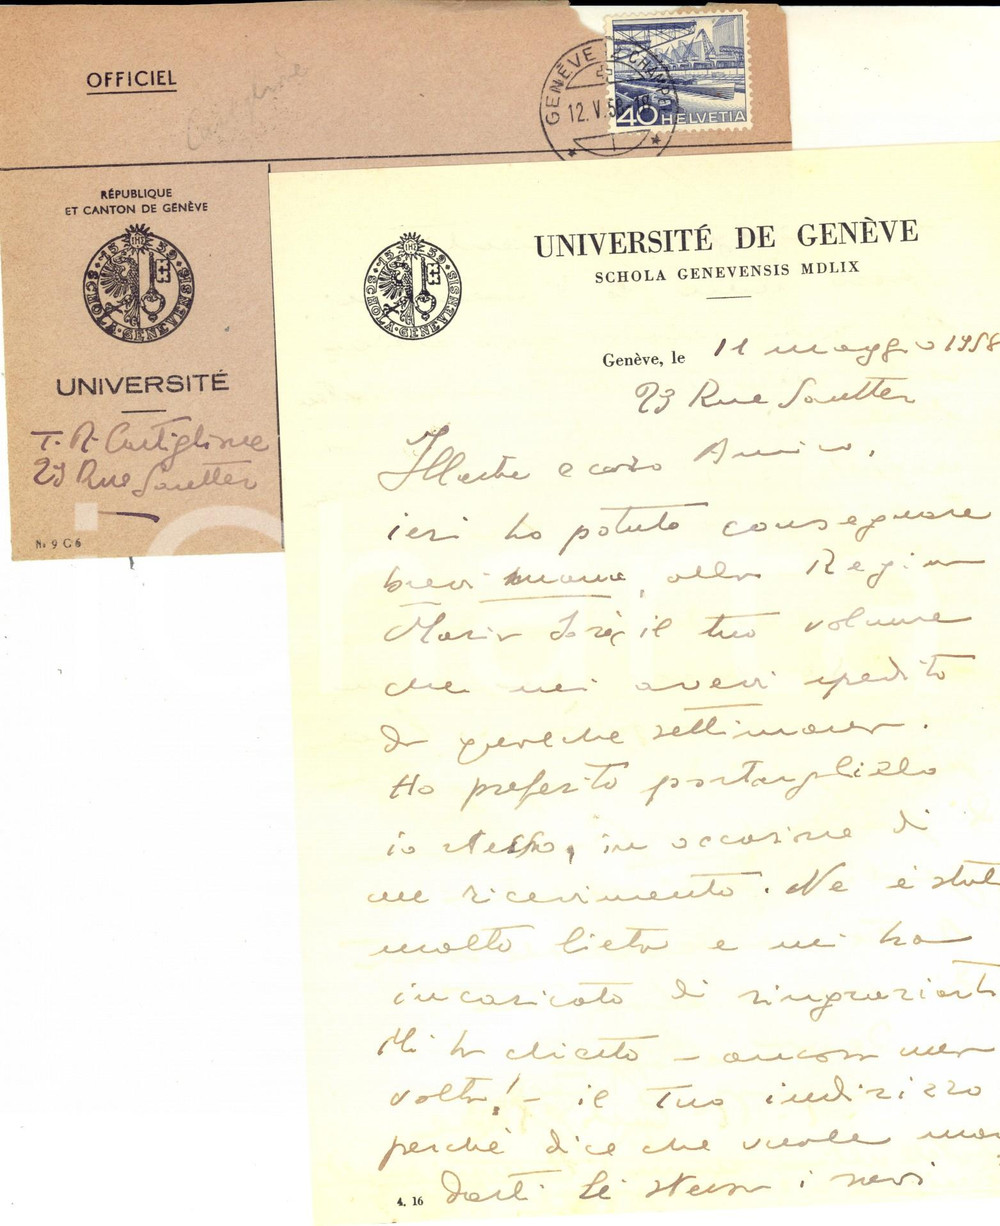 OFFICIEL
GENÈVE 12 CHAMPEL
12.V.58-18
40 HELVETIA
RÉPUBLIQUE
ET CANTON DE GENÈVE
1559
SCHOLA GENEVENSIS
UNIVERSITÉ
T. R. Castiglione
23 Rue Sautter
Nr 9 G 6
1559
SCHOLA GENEVENSIS
UNIVERSITÉ DE GENÈVE
SCHOLA GENEVENSIS MDLIX
Genève, le 11 maggio 1958
23 Rue Sautter
Illustre e caro Amico,
ieri ho potuto consegnare
brevi manu, alla Regina
Maria José, il tuo volume
che mi avevi spedito
da qualche settimana.
Ho preferito portarglielo
io stesso, in occasione di
un ricevimento. Ne è stata
molto lieta e mi ha
incaricato di ringraziarti.
Mi ha chiesto - ancora una
volta! - il tuo indirizzo
perché dice che vuole man
darti lei stessa i suoi
4. 16